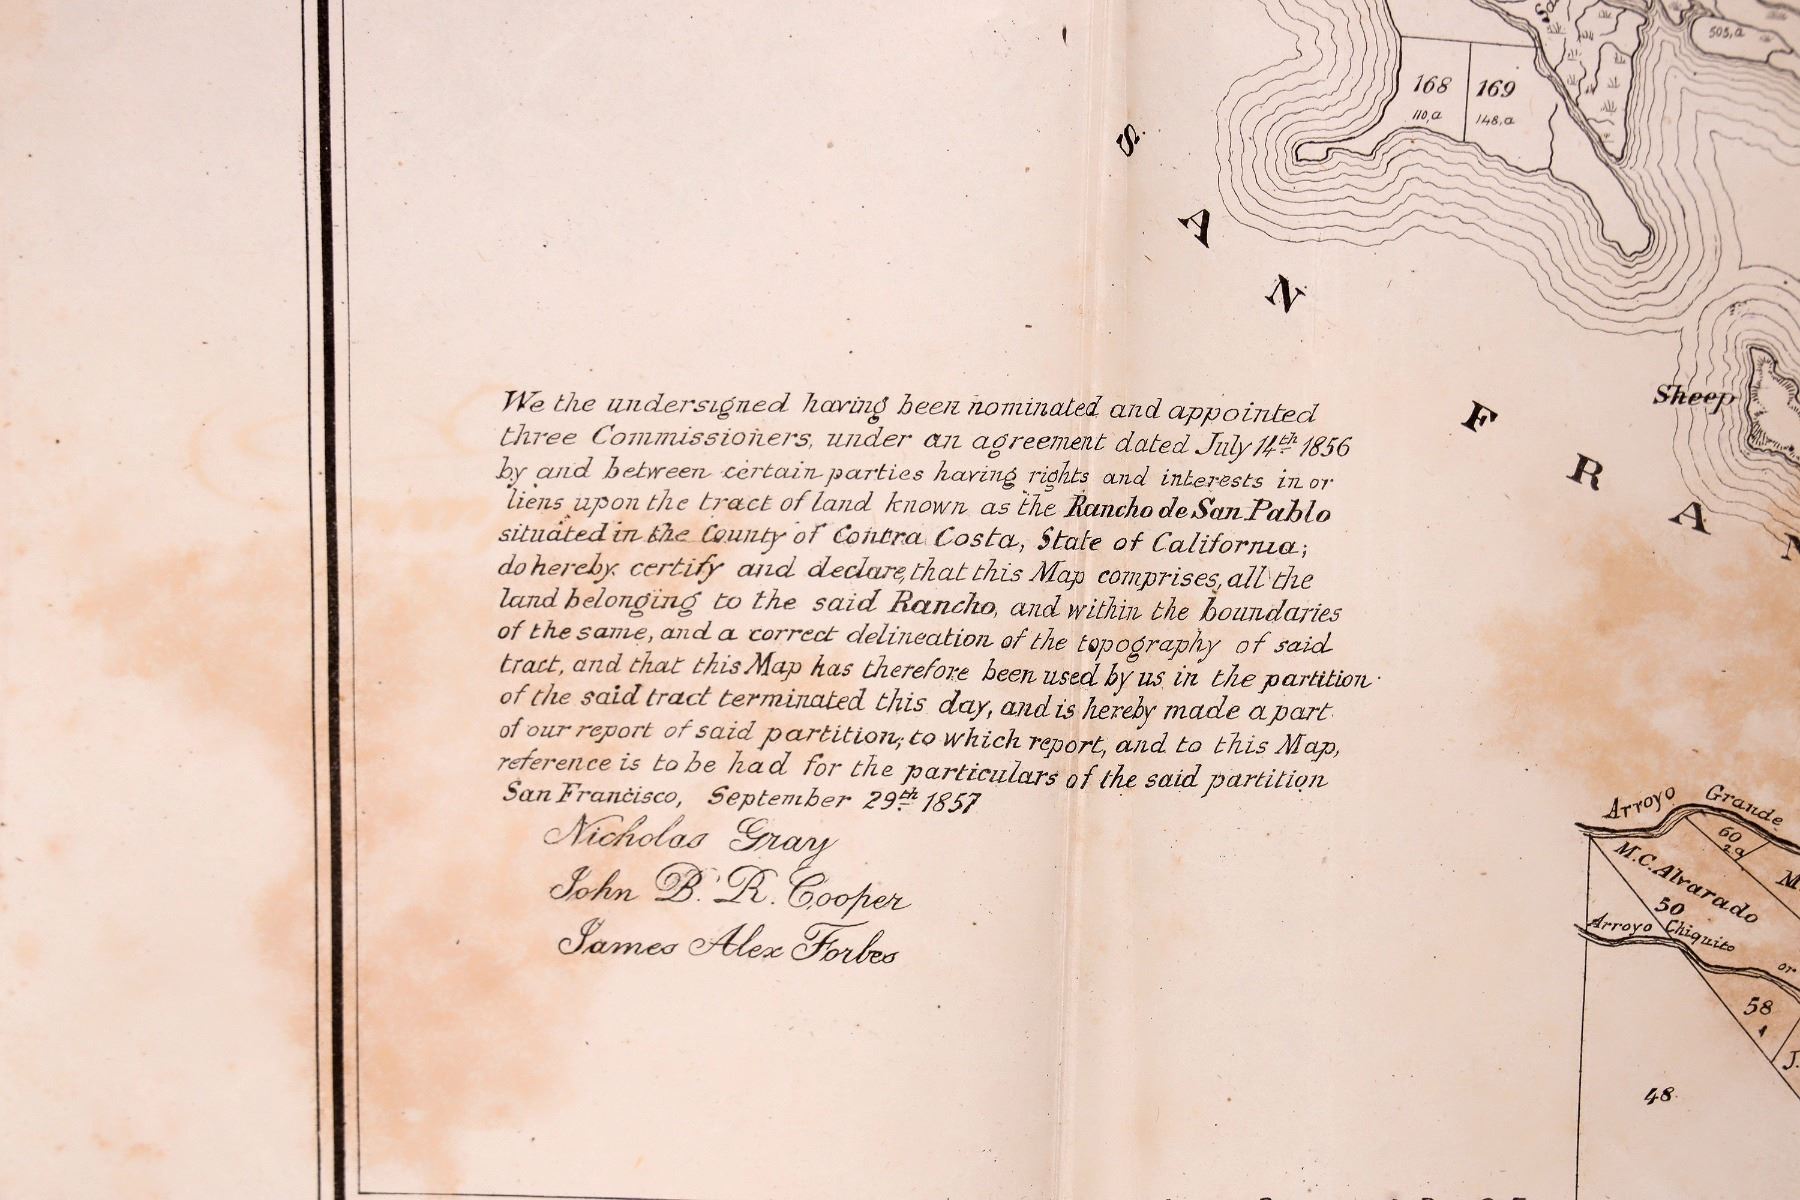 503,a
168
169
110,a
148,a
S A N F R A N
Sheep
We the undersigned having been nominated and appointed
three Commissioners, under an agreement dated July 14th 1856
by and between certain parties having rights and interests in or
liens upon the tract of land known as the Rancho de San Pablo
situated in the County of Contra Costa, State of California;
do hereby certify and declare, that this Map comprises, all the
land belonging to the said Rancho, and within the boundaries
of the same, and a correct delineation of the topography of said
tract, and that this Map has therefore been used by us in the partition
of the said tract terminated this day, and is hereby made a part
of our report of said partition; to which report, and to this Map,
reference is to be had for the particulars of the said partition
San Francisco, September 29th 1857
Nicholas Gray
John B. R. Cooper
James Alex Forbes
Arroyo Grande
60
2a
M.C. Alvarado
M
50
Arroyo Chiquito
or
58
J.
48